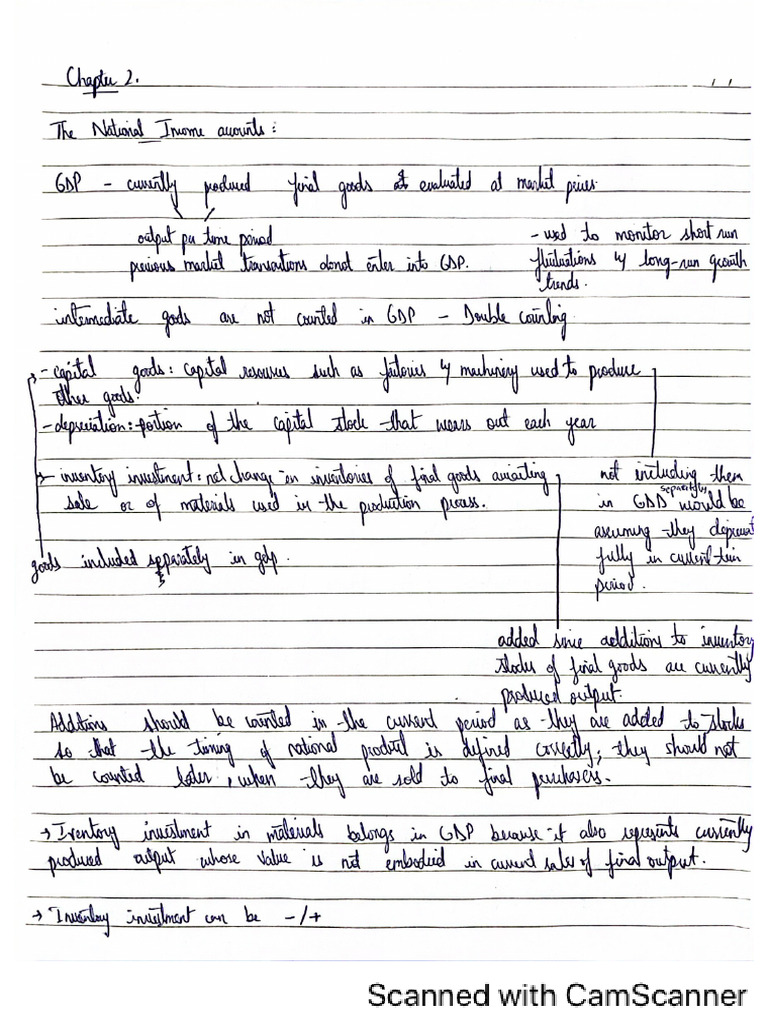 Chapter 2.
The National Income accounts:
GDP - currently produced final goods evaluated at market prices.
output per time period
previous market transactions donot enter into GDP.
- used to monitor short run
fluctuations & long-run growth
trends.
intermediate goods are not counted in GDP - Double counting
- capital goods: capital resources such as factories & machinery used to produce
other goods.
- depreciation: portion of the capital stock that wears out each year
- inventory investment: net change in inventories of final goods awaiting
sale or of materials used in the production process.
goods included separately in gdp.
not including them
in GDP separately would be
assuming they depreciat
fully in current time
period.
added since additions to inventory
stocks of final goods are currently
produced output.
Additions should be counted in the current period as they are added to stocks
so that the timing of national product is defined correctly; they should not
be counted later, when they are sold to final purchasers.
→ Inventory investment in materials belongs in GDP because it also represents currently
produced output whose value is not embodied in current sales of final output.
→ Inventory investment can be -/+
Scanned with CamScanner